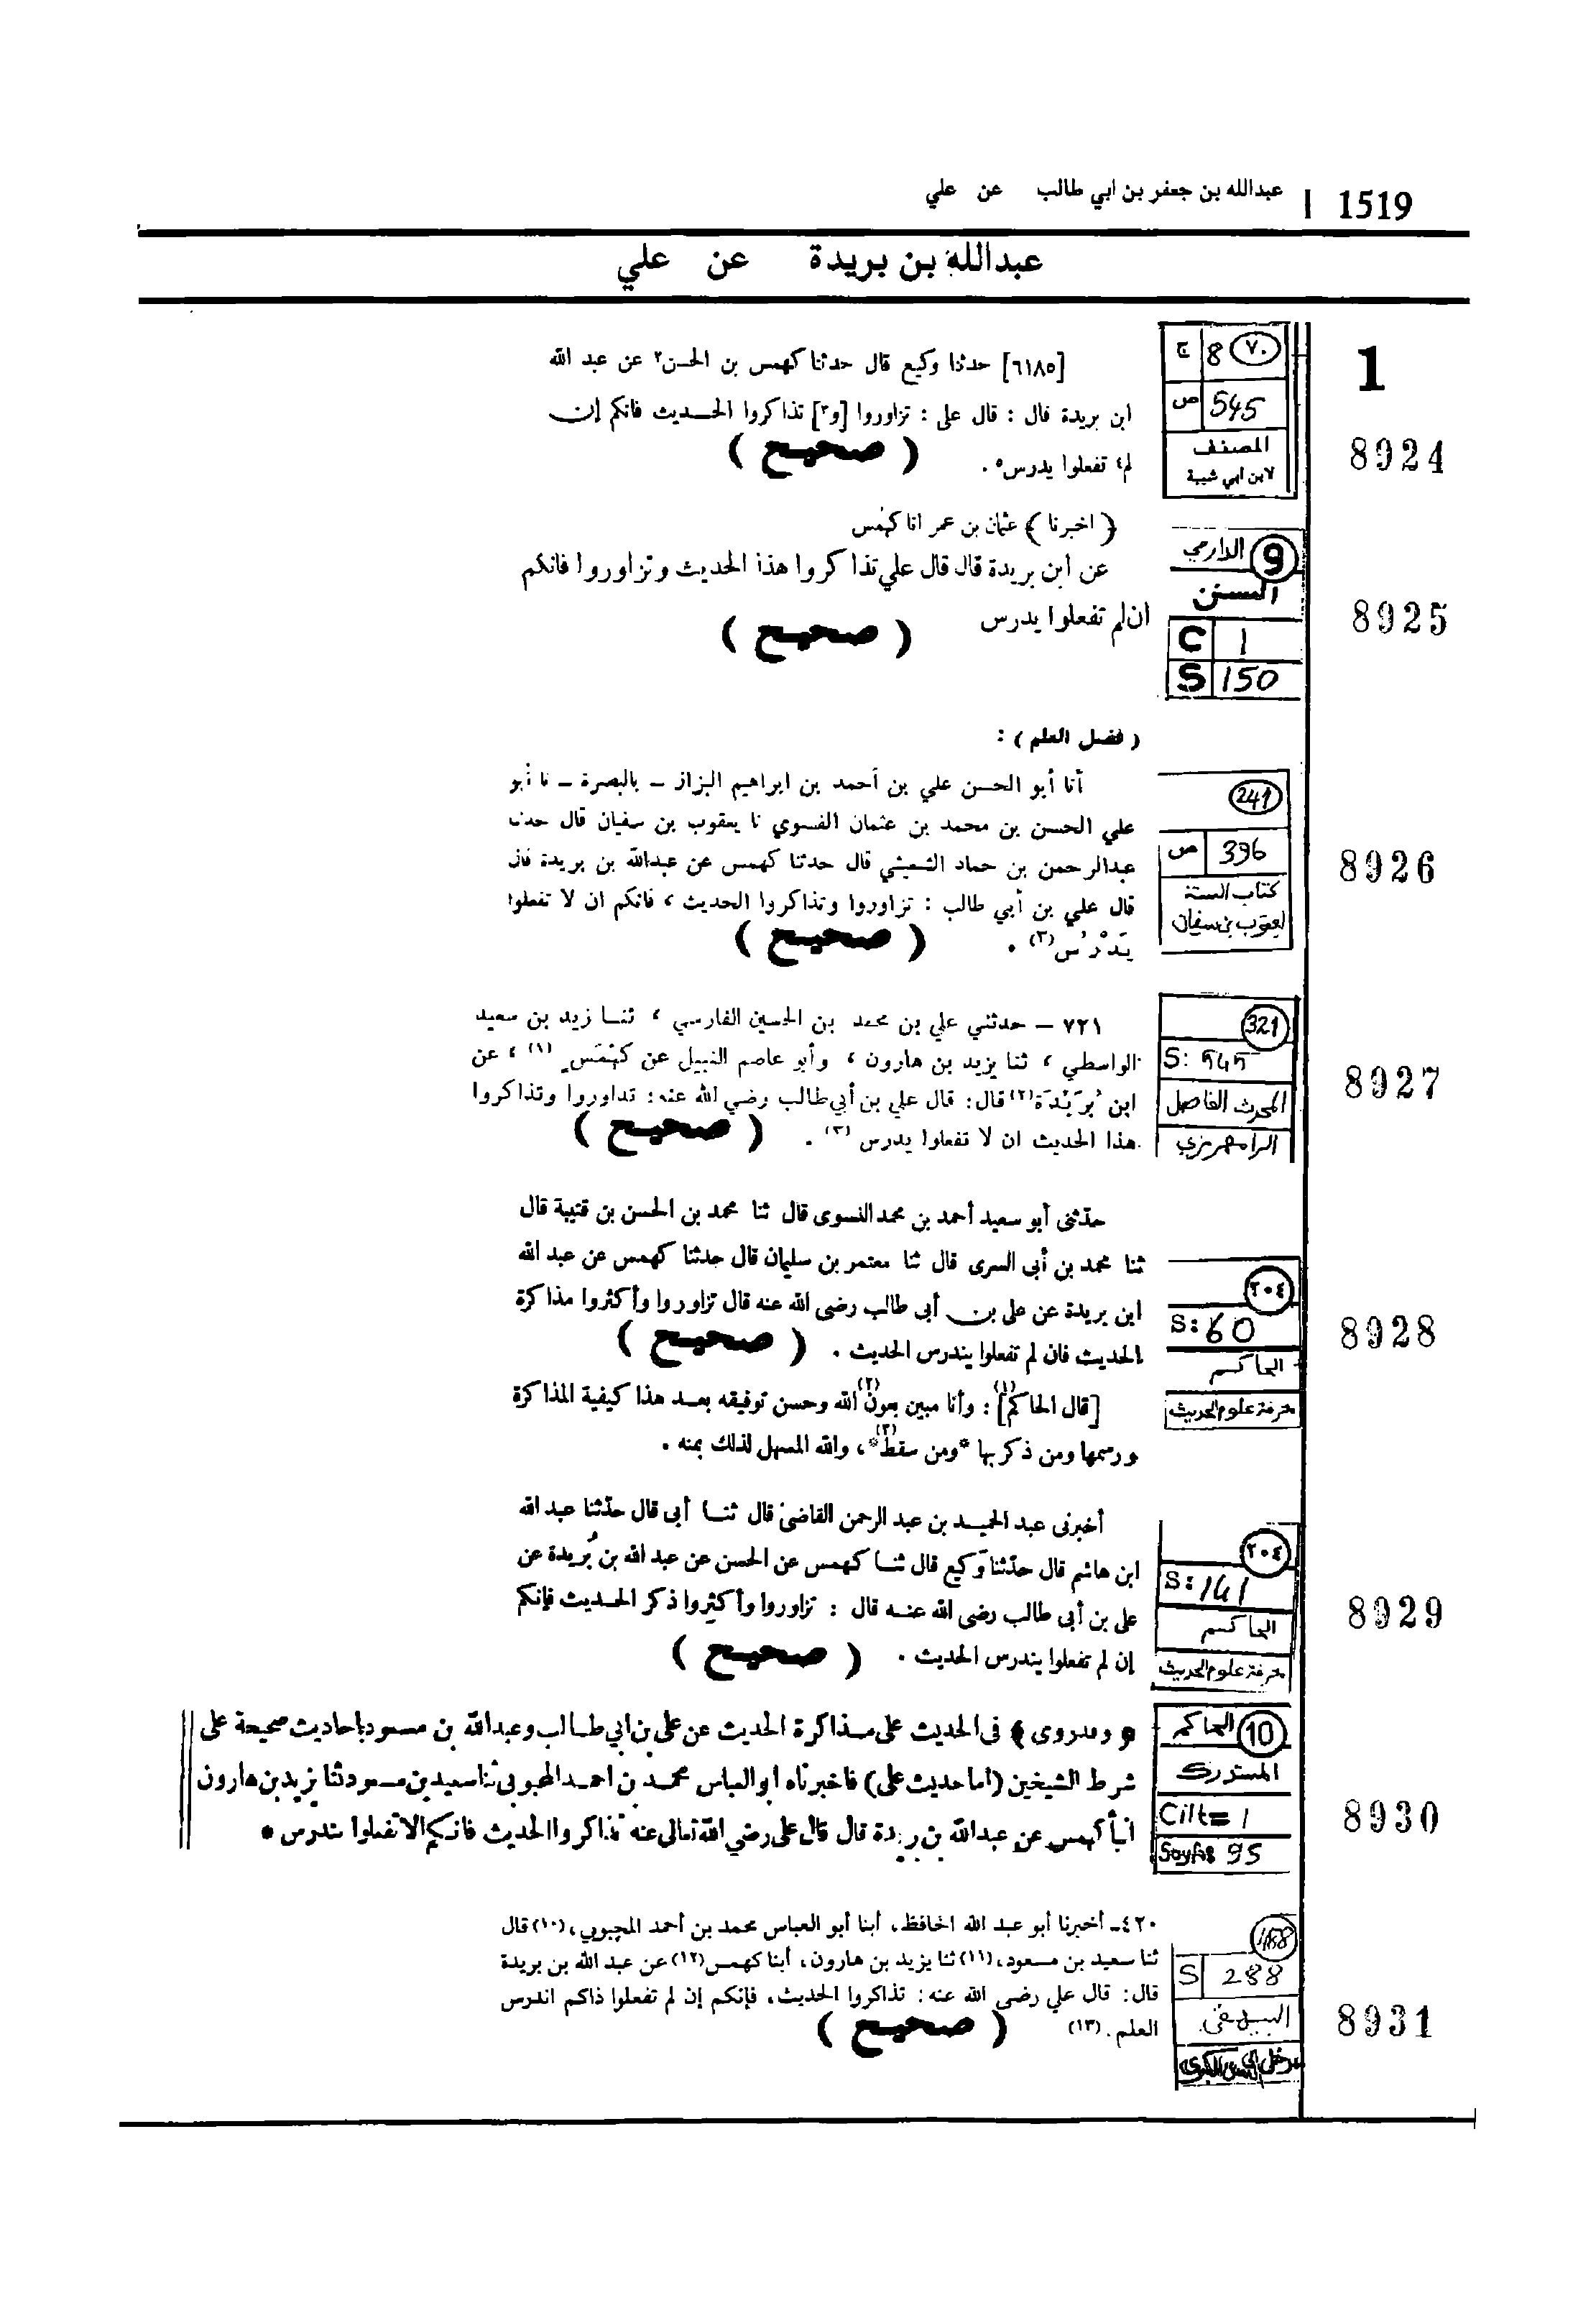 1519 | عبدالله بن جعفر بن ابي طالب عن علي
عبدالله بن بريدة عن علي
1
8924
٧٠ 8 ج
545 ص
المصنف
لابن ابي شيبة
[٦١٨٥] حدثنا وكيع قال حدثنا كهمس بن الحسن٢ عن عبد الله
ابن بريدة قال : قال على : تزاوروا [و٣] تذاكروا الحديث فانكم إن
لم٤ تفعلوا يدرس٥ . ( صحيح )
8925
9 الدارمي
السنن
C 1
S 150
( اخبرنا ) عثمان بن عمر انا كهمس
عن أبن بريدة قال قال علي تذاكروا هذا الحديث وتزاوروا فانكم
ان لم تفعلوا يدرس ( صحيح )
8926
241
396 ص
كتاب السنة
ليعقوب بن سفيان
( فضل العلم ) :
أنا أبو الحسن علي بن أحمد بن ابراهيم البزاز – بالبصرة – نا أبو
علي الحسن بن محمد بن عثمان الفسوي نا يعقوب بن سفيان قال حدث
عبدالرحمن بن حماد الشعيثي قال حدثنا كهمس عن عبدالله بن بريدة قال
قال علي بن أبي طالب : تزاوروا وتذاكروا الحديث ، فانكم ان لا تفعلوا
يَدْرُس(٣) . ( صحيح )
8927
321
S: 545
المحدث الفاصل
الرامهرمزي
٧٢١ – حدثني علي بن محمد بن الحسين الفارسي ، ثنا زيد بن سعيد
الواسطي ، ثنا يزيد بن هارون ، وأبو عاصم النبيل عن كَهْمَس (١) ، عن
ابن بُرَيْدَة(٢) قال: قال علي بن أبي طالب رضي الله عنه: تداوروا وتذاكروا
هذا الحديث ان لا تفعلوا يدرس (٣) . ( صحيح )
8928
٢٠٤
S: 60
الحاكم
معرفة علوم الحديث
حدّثنى أبو سعيد أحمد بن محمد النسوى قال ثنا محمد بن الحسن بن قتيبة قال
ثنا محمد بن أبى السرى قال ثنا معتمر بن سليمان قال حدثنا كهمس عن عبد الله
ابن بريدة عن على بن أبى طالب رضى الله عنه قال تزاوروا وأكثروا مذاكرة
الحديث فان لم تفعلوا يندرس الحديث . ( صحيح )
[قال الحاكم](١) : وأنا مبين بعون(٢) الله وحسن توفيقه بعد هذا كيفية المذاكرة
ورسمها ومن ذكر بها *ومن سقط(٣)*، والله المسهل لذلك بمنه .
8929
٢٠٤
S: 141
الحاكم
معرفة علوم الحديث
أخبرنى عبد الحميد بن عبد الرحمن القاضى قال ثنا أبى قال حدّثنا عبد الله
ابن هاشم قال حدّثنا وكيع قال ثنا كهمس عن الحسن عن عبد الله بن بُريدة عن
على بن أبى طالب رضى الله عنه قال : تزاوروا وأكثروا ذكر الحديث فإنكم
إن لم تفعلوا يندرس الحديث . ( صحيح )
8930
10 الحاكم
المستدرك
Cilt= 1
Sayfa 95
﴿ وقدروى ﴾ فى الحديث على مذاكرة الحديث عن على بن ابي طالب وعبدالله بن مسعود باحاديث صحيحة على
شرط الشيخين (أما حديث على) فاخبرناه ابوالعباس محمد بن احمد المحبوبى ثنا سعيد بن مسعود ثنا يزيد بن هارون
انبأ كهمس عن عبدالله بن بريدة قال قال على رضي الله تعالى عنه تذاكروا الحديث فانكم الا تفعلوا يندرس *
8931
488
S 288
البيهقي
مدخل إلى السنن الكبرى
٤٢٠ـ أخبرنا أبو عبد الله الحافظ، أبنا أبو العباس محمد بن أحمد المحبوبي،(١٠) قال
ثنا سعيد بن مسعود،(١١) ثنا يزيد بن هارون، أبنا كهمس(١٢) عن عبد الله بن بريدة
قال: قال علي رضي الله عنه: تذاكروا الحديث، فإنكم إن لم تفعلوا ذاكم اندرس
العلم.(١٣) ( صحيح )